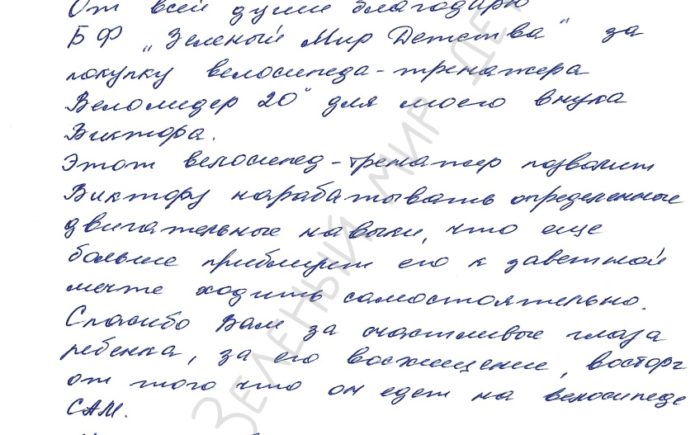 От всей души благодарю
БФ "Зеленый Мир Детства" за
покупку велосипеда-тренажера
Велолидер 20" для моего внука
Виктора.
Этот велосипед-тренажер позволит
Виктору нарабатывать определенные
двигательные навыки, что еще
больше приблизит его к заветной
мечте ходить самостоятельно.
Спасибо Вам за счастливые глаза
ребенка, за его восхищение, восторг
от того что он едет на велосипеде
САМ.
ЗЕЛЕНЫЙ МИР ДЕ